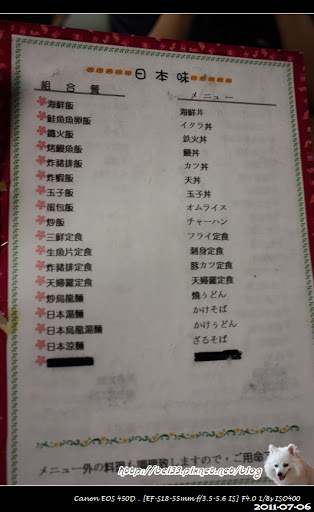 日本味
組合餐 メニュー
海鮮飯 海鮮丼
鮭魚魚卵飯 イクラ丼
鐵火飯 鉄火丼
烤鰻魚飯 鰻丼
炸豬排飯 カツ丼
炸蝦飯 天丼
玉子飯 玉子丼
蛋包飯 オムライス
炒飯 チャーハン
三鮮定食 フライ定食
生魚片定食 刺身定食
炸豬排定食 豚カツ定食
天婦羅定食 天婦羅定食
炒烏龍麵 燒うどん
日本湯麵 かけそば
日本烏龍湯麵 かけぅどん
日本涼麵 ざるそば
メニュー外の料理も調理致しますので、ご用命下
http://bei33.pixnet.net/blog
Canon EOS 450D . [EF-S18-55mm f/3.5-5.6 IS] F4.0 1/8s ISO400
2011-07-06